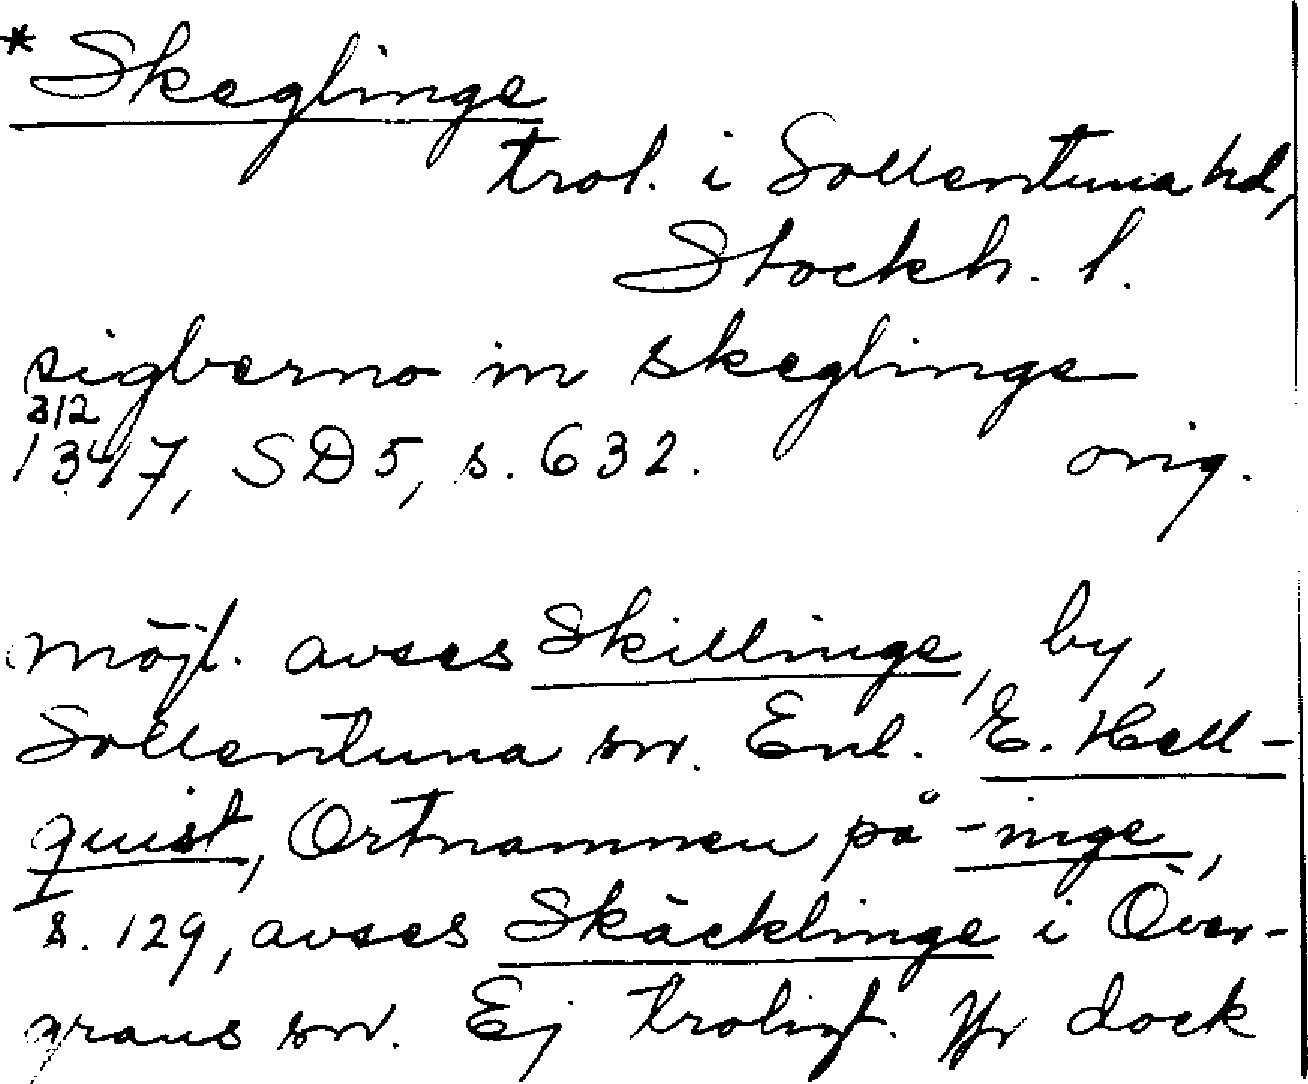 *Skeglinge
trol. i Sollentuna hd,
Stockh. l.
sigberno in skeglinge
3/2
1347, SD 5, s. 632. orig.
möjl. avses Skillinge, by,
Sollentuna sn. Enl. E. Hell-
quist, Ortnammen på -inge,
s. 129, avses Skäcklinge i Över-
grans sn. Ej troligt. Jfr dock